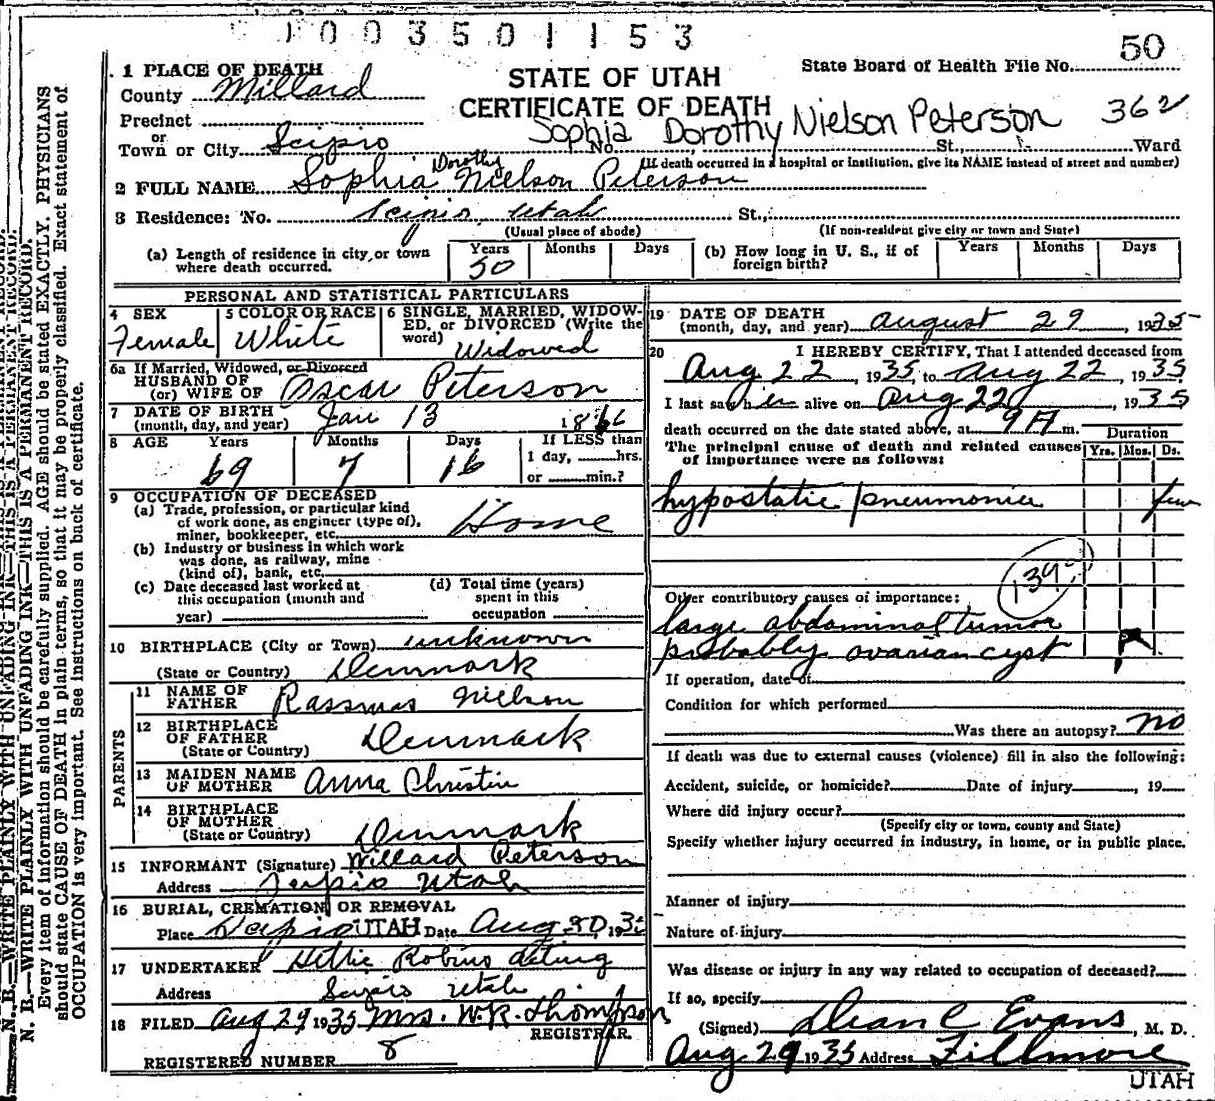 1003501153
50
1 PLACE OF DEATH
STATE OF UTAH
State Board of Health File No.
County Millard
CERTIFICATE OF DEATH
Precinct
Sophia Dorothy Nielson Peterson 362
or
Town or City Scipio No. St., Ward
(If death occurred in a hospital or institution, give its NAME instead of street and number)
Dorothy
2 FULL NAME Sophia Nielson Peterson
3 Residence: No. Scipio, Utah St.,
(Usual place of abode) (If non-resident give city or town and State)
(a) Length of residence in city, or town where death occurred. Years 50 Months Days
(b) How long in U. S., if of foreign birth? Years Months Days
PERSONAL AND STATISTICAL PARTICULARS
4 SEX Female
5 COLOR OR RACE White
6 SINGLE, MARRIED, WIDOWED, or DIVORCED (Write the word) Widowed
6a If Married, Widowed, or Divorced
HUSBAND OF
(or) WIFE OF Oscar Peterson
7 DATE OF BIRTH
(month, day, and year) Jan 13 1866
8 AGE Years Months Days If LESS than
69 7 16 1 day, hrs.
or min.?
9 OCCUPATION OF DECEASED
(a) Trade, profession, or particular kind
of work done, as engineer (type of),
miner, bookkeeper, etc. Home
(b) Industry or business in which work
was done, as railway, mine
(kind of), bank, etc.
(c) Date deceased last worked at
this occupation (month and
year)
(d) Total time (years)
spent in this
occupation
10 BIRTHPLACE (City or Town) unknown
(State or Country) Denmark
PARENTS
11 NAME OF
FATHER Rassmus Nielson
12 BIRTHPLACE
OF FATHER Denmark
(State or Country)
13 MAIDEN NAME
OF MOTHER Anna Christin
14 BIRTHPLACE
OF MOTHER
(State or Country) Denmark
15 INFORMANT (Signature) Willard Peterson
Address Scipio Utah
16 BURIAL, CREMATION, OR REMOVAL
Place Scipio UTAH Date Aug 30, 1935
17 UNDERTAKER Hettie Robins acting
Address Scipio Utah
18 FILED Aug 29 1935 Mrs. W.R. Thompson
REGISTRAR.
REGISTERED NUMBER 8
19 DATE OF DEATH
(month, day, and year) August 29, 1935
20 I HEREBY CERTIFY, That I attended deceased from
Aug 22, 1935, to Aug 22, 1935
I last saw her alive on Aug 22, 1935
death occurred on the date stated above, at 9 A m.
The principal cause of death and related causes
of importance were as follows:
Duration
Yrs. Mos. Ds.
hypostatic pneumonia few
139
Other contributory causes of importance:
large abdominal tumor
probably ovarian cyst
If operation, date of
Condition for which performed
Was there an autopsy? no
If death was due to external causes (violence) fill in also the following:
Accident, suicide, or homicide? Date of injury , 19
Where did injury occur?
(Specify city or town, county and State)
Specify whether injury occurred in industry, in home, or in public place.
Manner of injury
Nature of injury
Was disease or injury in any way related to occupation of deceased?
If so, specify
(Signed) Dean C Evans, M. D.
Aug 29 1935 Address Fillmore
UTAH
N. B.—WRITE PLAINLY WITH UNFADING INK—THIS IS A PERMANENT RECORD.
N. B.—WRITE PLAINLY WITH UNFADING INK—THIS IS A PERMANENT RECORD.
Every item of information should be carefully supplied. AGE should be stated EXACTLY. PHYSICIANS
should state CAUSE OF DEATH in plain terms, so that it may be properly classified. Exact statement of
OCCUPATION is very important. See instructions on back of certificate.